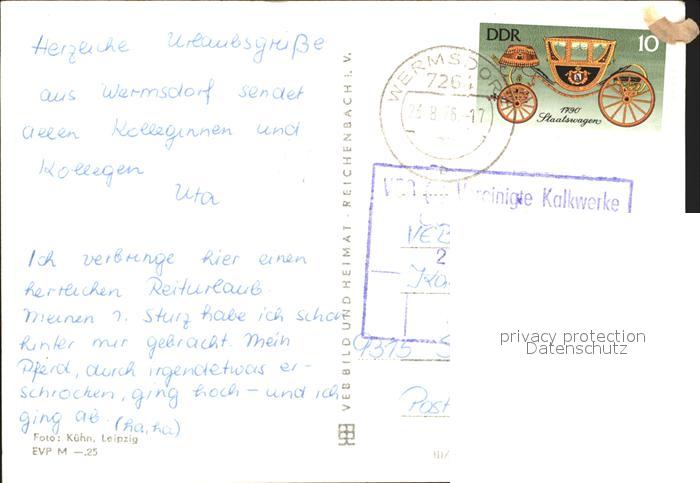 Herzliche Urlaubsgrüße
aus Wermsdorf sendet
allen Kolleginnen und
Kollegen
Uta
Ich verbringe hier einen
herrlichen Reiturlaub.
Meinen 1. Sturz habe ich schon
hinter mir gebracht. Mein
Pferd, durch irgendetwas er-
schrocken, ging hoch – und ich
ging ab. (ha, ha)
Foto: Kühn, Leipzig
EVP M —.25
VEB BILD UND HEIMAT · REICHENBACH I. V.
WERMSDORF
7264
23.8.76.-17
DDR
10
1790
Staatswagen
Vereinigte Kalkwerke
VEB
2
9375
Post
III/
privacy protection
Datenschutz